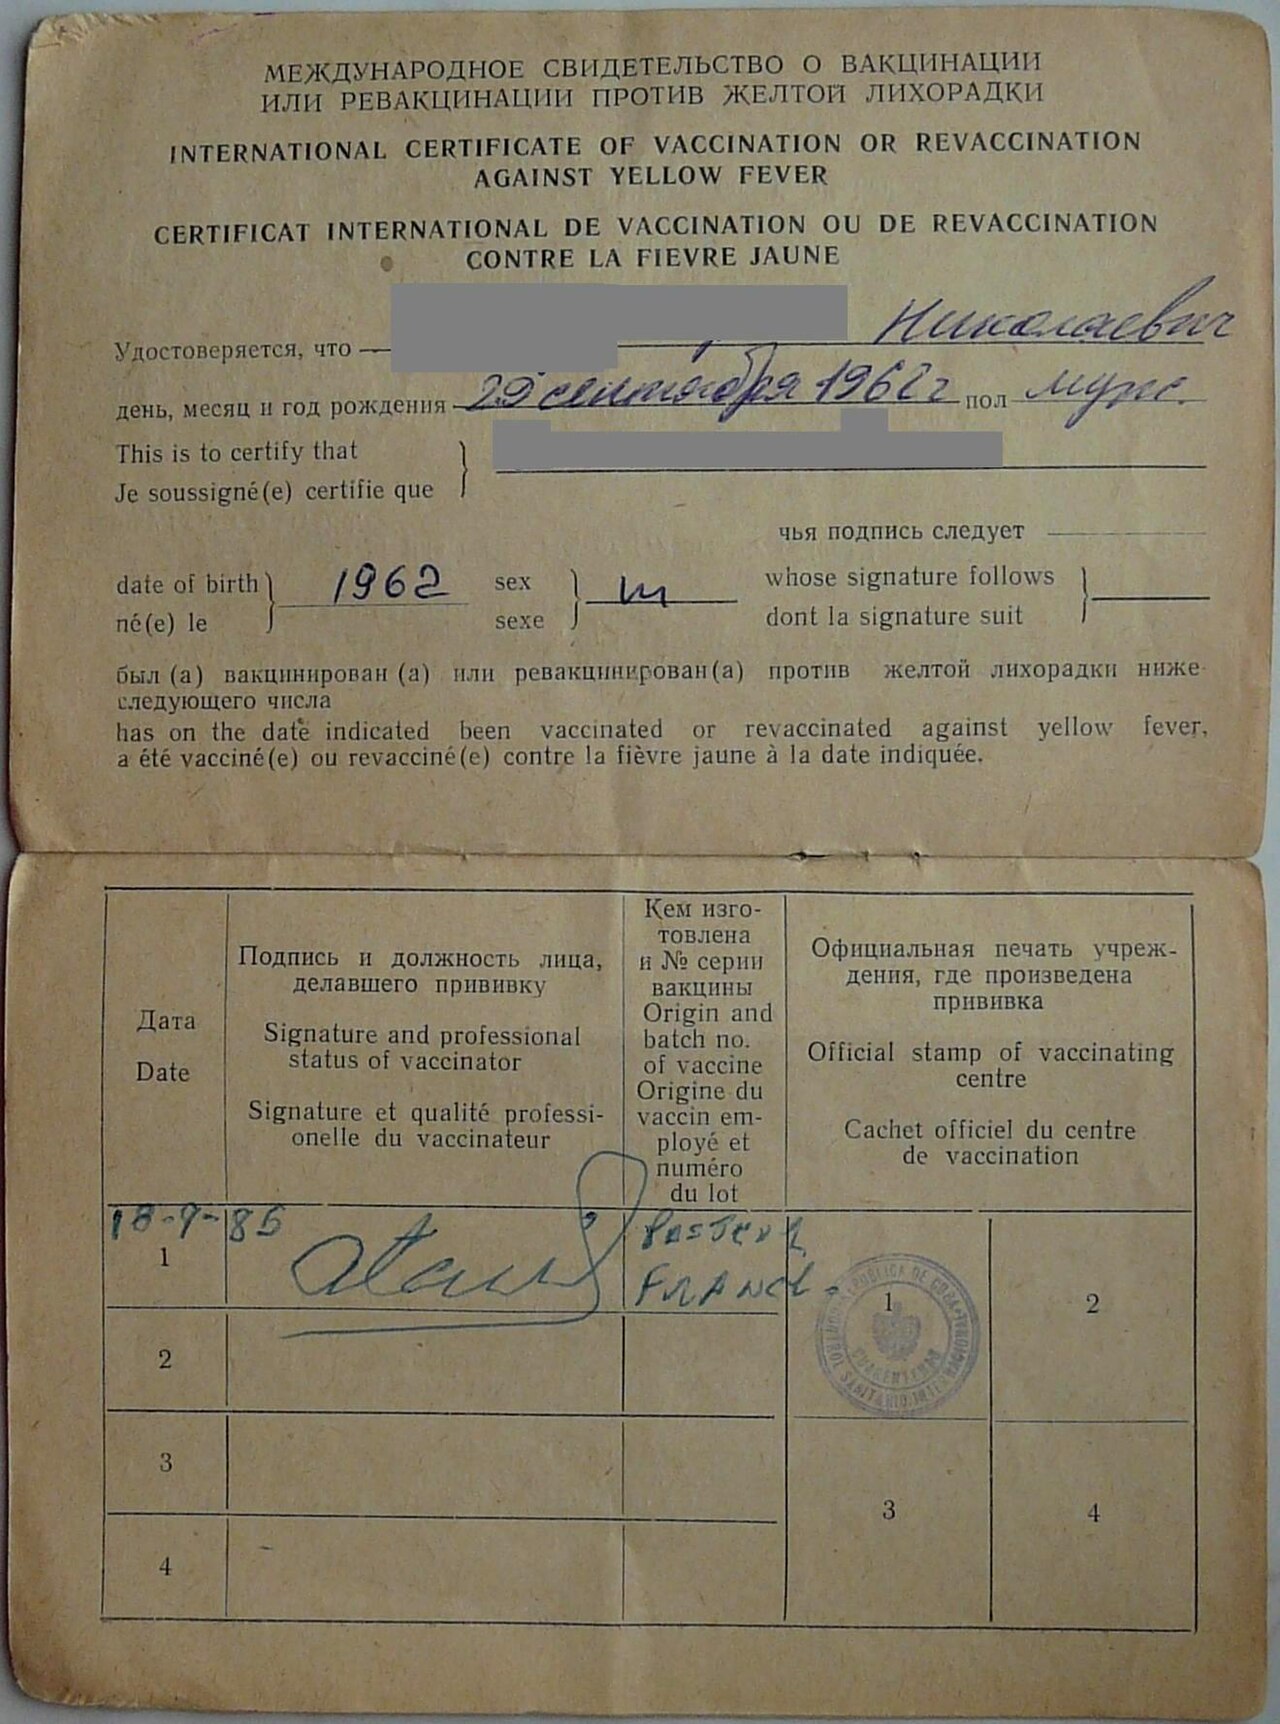 МЕЖДУНАРОДНОЕ СВИДЕТЕЛЬСТВО О ВАКЦИНАЦИИ
ИЛИ РЕВАКЦИНАЦИИ ПРОТИВ ЖЕЛТОЙ ЛИХОРАДКИ
INTERNATIONAL CERTIFICATE OF VACCINATION OR REVACCINATION
AGAINST YELLOW FEVER
CERTIFICAT INTERNATIONAL DE VACCINATION OU DE REVACCINATION
CONTRE LA FIEVRE JAUNE
Удостоверяется, что Николаевич
день, месяц и год рождения 29 сентября 1962 г пол муж.
This is to certify that
Je soussigné(e) certifie que
чья подпись следует
date of birth 1962 sex m whose signature follows
né(e) le sexe dont la signature suit
был (а) вакцинирован (а) или ревакцинирован(а) против желтой лихорадки ниже
следующего числа
has on the date indicated been vaccinated or revaccinated against yellow fever,
a été vacciné(e) ou revacciné(e) contre la fièvre jaune à la date indiquée.
Дата
Date
Подпись и должность лица,
делавшего прививку
Signature and professional
status of vaccinator
Signature et qualité professi-
onelle du vaccinateur
Кем изго-
товлена
и № серии
вакцины
Origin and
batch no.
of vaccine
Origine du
vaccin em-
ployé et
numéro
du lot
Официальная печать учреж-
дения, где произведена
прививка
Official stamp of vaccinating
centre
Cachet officiel du centre
de vaccination
18-9-85
1
FRANCE
1
2
2
3
3
4
4